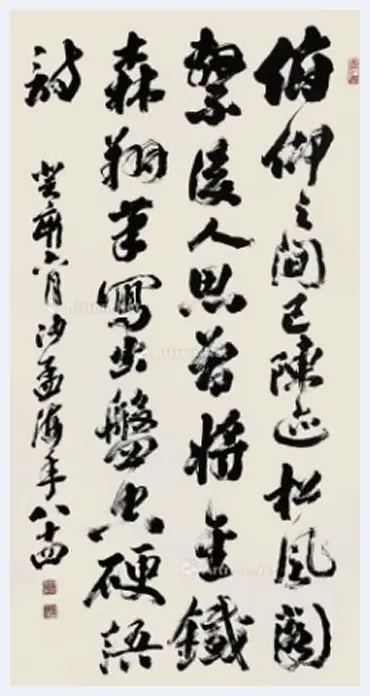 俯仰之間已陳迹松風閣
繫後人思若將金鐵
森翔筆寫出盤空硬語
詩
癸亥六月沙孟海年八十四